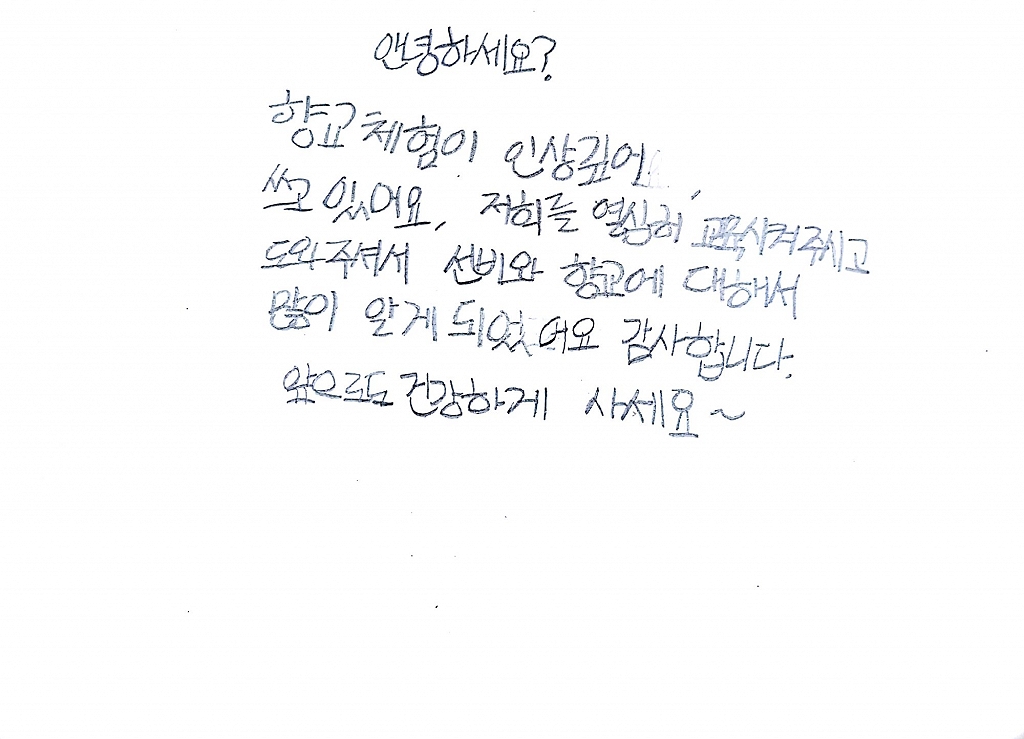 안녕하세요?
향교 체험이 인상깊어
쓰고 있어요, 저희를 열심히 교육시켜주시고
도와주셔서 선비와 향교에 대해서
많이 알게 되었어요 감사합니다.
앞으로도 건강하게 사세요~